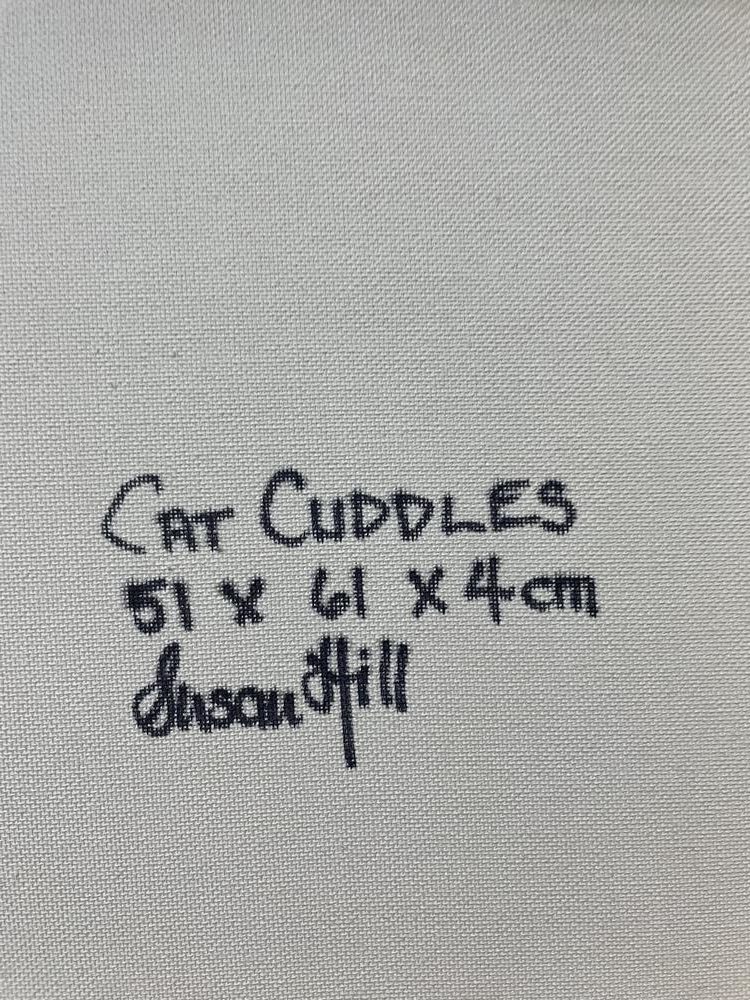 CAT CUDDLES
51 X 61 X 4cm
Susan Hill